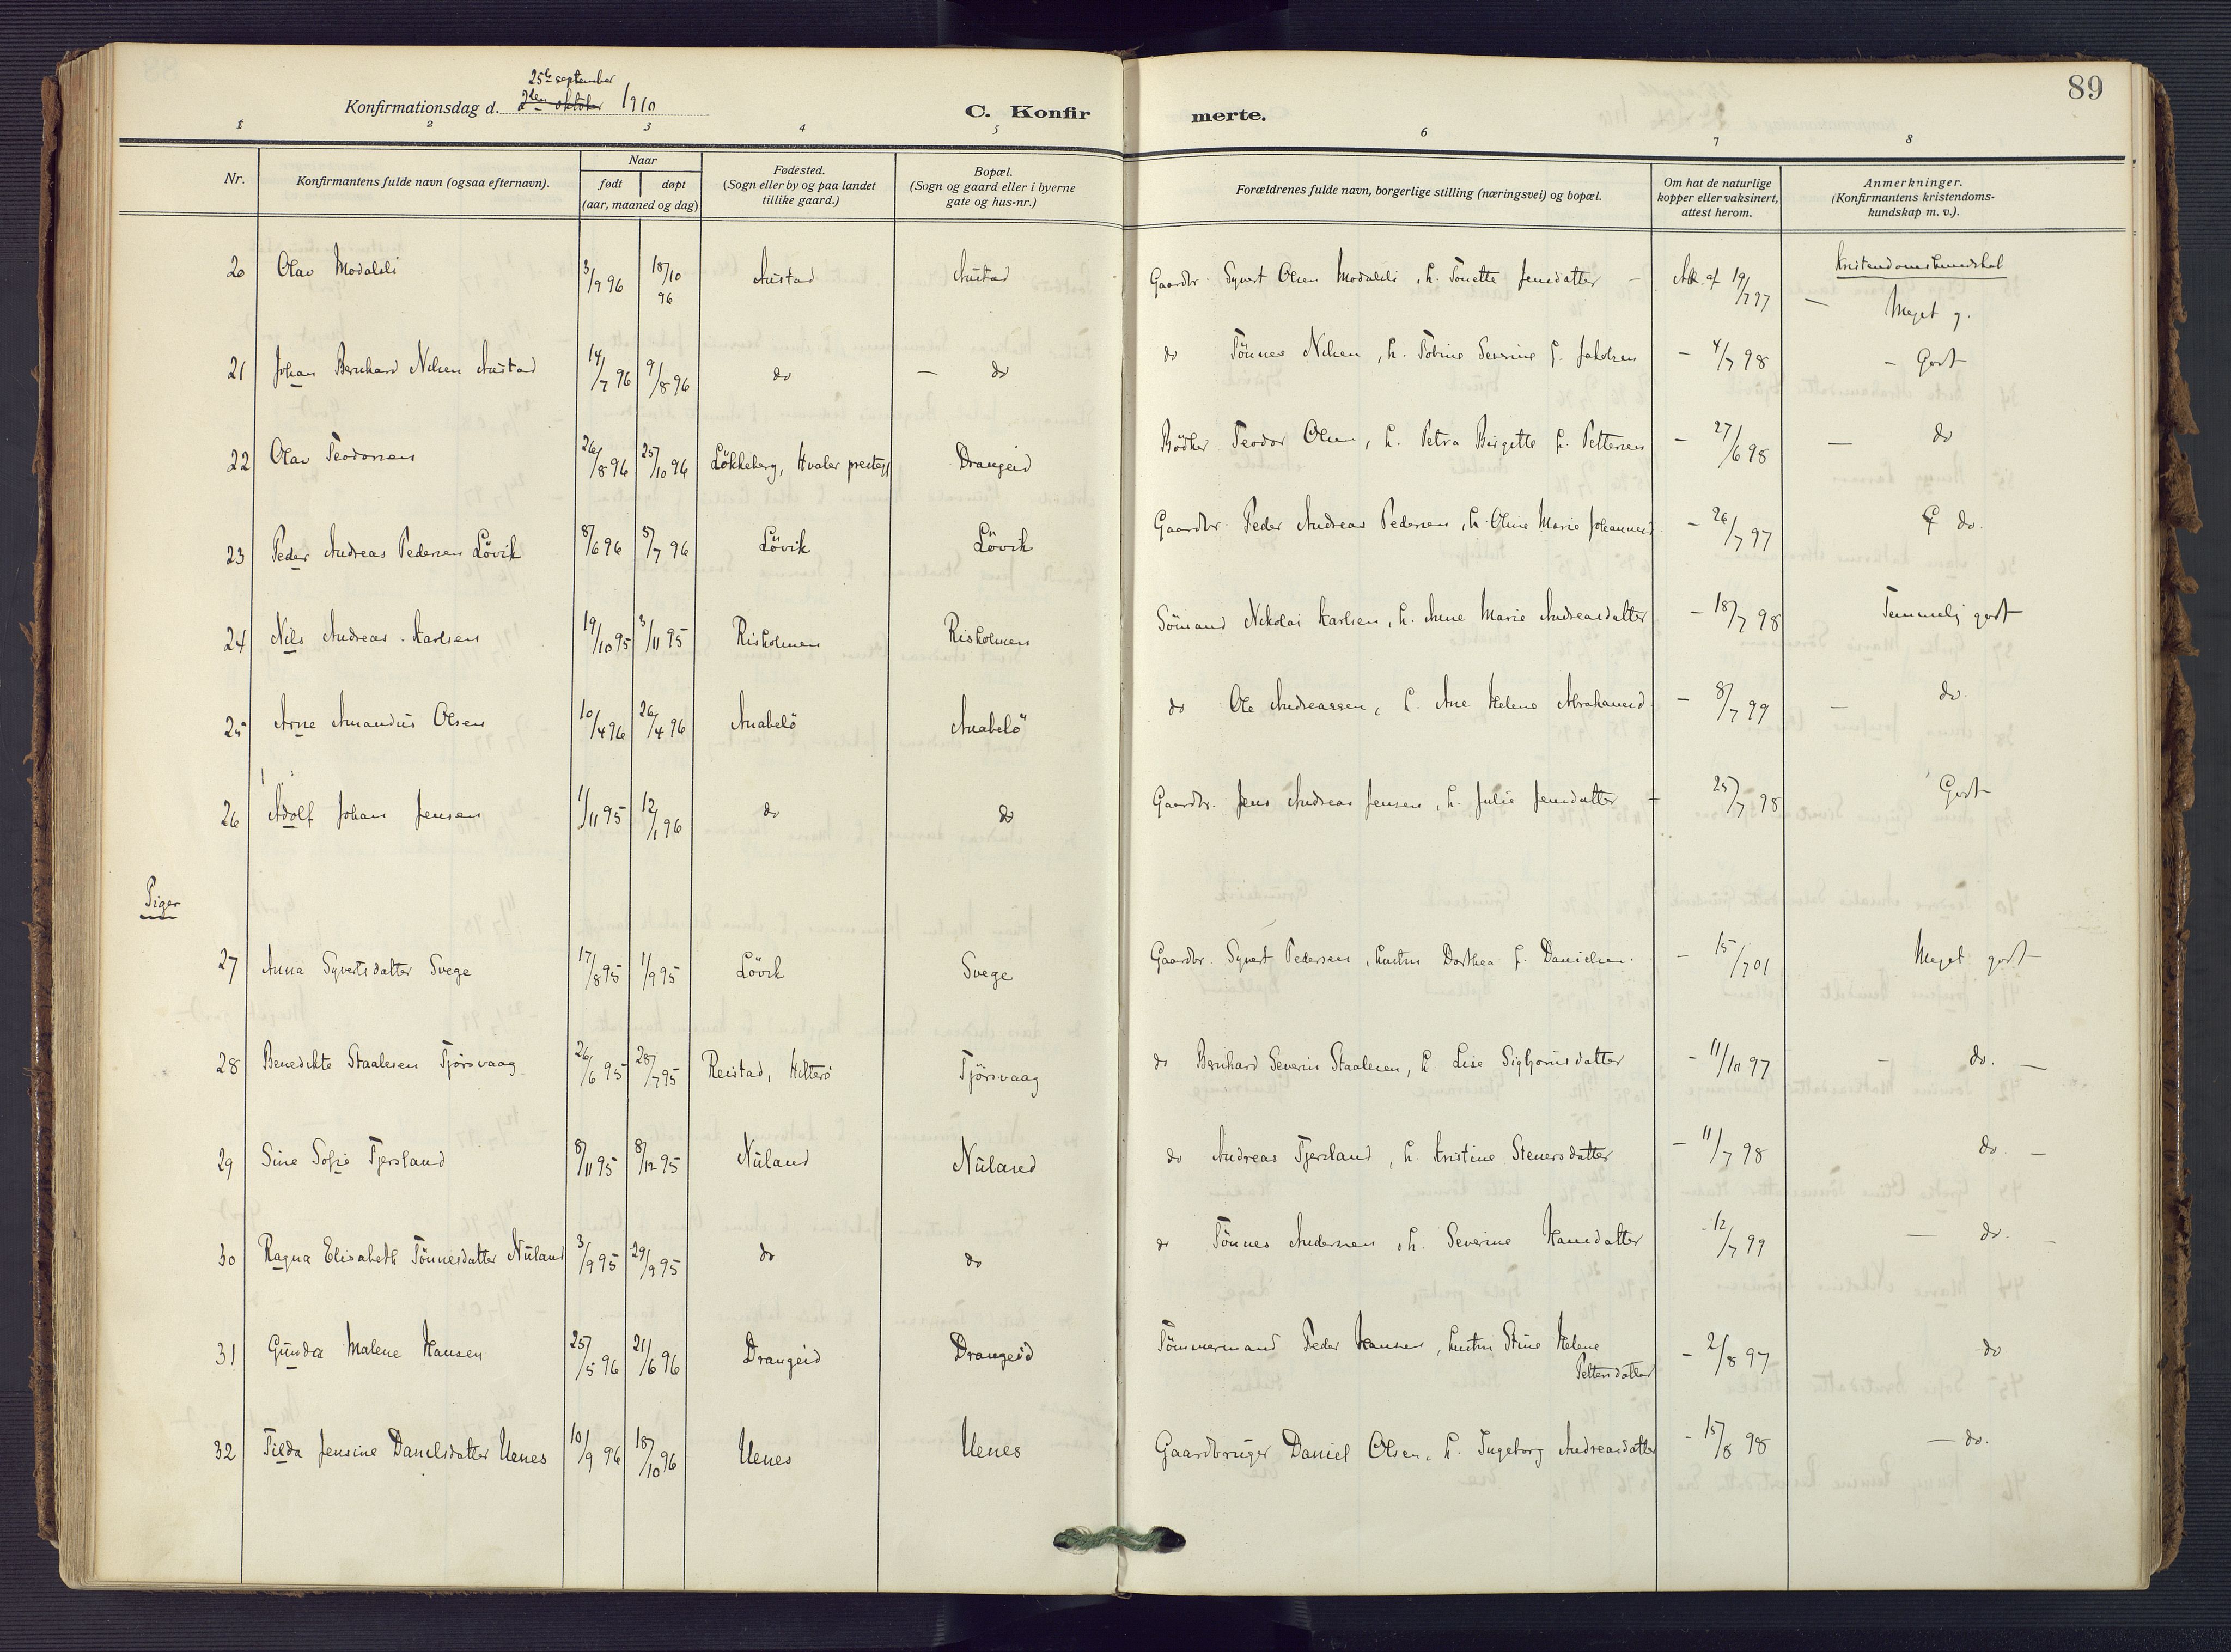 89
25de september
Konfirmationsdag d. 2den oktober 1910
C. Konfirmerte.
1 2 3 4 5 6 7 8
Nr.
Konfirmantens fulde navn (ogsaa efternavn).
Naar
født
døpt
(aar, maaned og dag)
Fødested.
(Sogn eller by og paa landet
tillike gaard.)
Bopæl.
(Sogn og gaard eller i byerne
gate og hus-nr.)
Forældrenes fulde navn, borgerlige stilling (næringsvei) og bopæl.
Om hat de naturlige
kopper eller vaksinert,
attest herom.
Anmerkninger.
(Konfirmantens kristendoms-
kundskap m. v.).
Kristendomskundskab
20 Olav Modalsli 3/9 96 18/10 96 Austad Austad Gaardbr. Syvert Olsen Modalsli, h. Tonette Jensdatter – Att. af 19/7 97 – Meget g.
21 Johan Bernhard Nilsen Austad 14/7 96 9/8 96 do – do do Tönnes Nilsen, h. Tobine Severine f. Jakobsen – 4/7 98 – Godt
22 Olav Teodorsen 26/8 96 25/10 96 Lökkeberg, Hvaler prestegj Drangeid Bödker Teodor Olsen, h. Petra Birgitte f. Pettersen – 27/6 98 – do
23 Peder Andreas Pedersen Lövik 8/6 96 5/7 96 Lövik Lövik Gaardbr. Peder Andreas Pedersen, h. Oline Marie Johannesd. – 26/7 97 do.
24 Nils Andreas Karlsen 19/10 95 3/11 95 Risholmen Risholmen Sömand Nikolai Karlsen, h. Anne Marie Andreasdatter – 18/7 98 Temmelig godt
25 Arne Amandus Olsen 10/4 96 26/4 96 Anabelö Anabelö do Ole Andreassen, h. Ane Helene Abrahamsd. – 8/7 99 – do.
26 Adolf Johan Jensen 1/11 95 12/1 96 do do Gaardbr. Jens Andreas Jensen, h. Julie Jensdatter – 25/7 98 Godt
Piger
27 Anna Syvertsdatter Svege 17/8 95 1/9 95 Lövik Svege Gaardbr. Syvert Pedersen, hustru Dorthea f. Danielsen. – 15/7 01 Meget godt
28 Benedikte Staalesen Tjörsvaag 26/6 95 28/7 95 Reistad, Hitterö Tjörsvaag do Bernhard Severin Staalesen, h. Lise Sigbjörnsdatter – 11/10 97 – do. –
29 Sine Sofie Tjersland 8/11 95 8/12 95 Nuland Nuland do Andreas Tjersland, h. Kristine Stenersdatter – 11/7 98 do. –
30 Ragna Elisabeth Tönnesdatter Nuland 3/9 95 29/9 95 do do do Tönnes Andersen, h. Severine Hansdatter – 12/7 99 – do. –
31 Gunda Malene Hansen 25/5 96 21/6 96 Drangeid Drangeid Tömmermand Peder Hansen, hustru Stine Helene
Pettersdatter – 2/8 97 do
32 Tilda Jensine Danielsdatter Uenes 10/9 96 18/10 96 Uenes Uenes Gaardbruger Daniel Olsen, h. Ingeborg Andreasdatter – 15/8 98 – do.